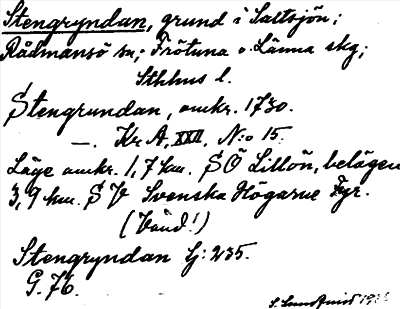 Stengryndan, grund i Saltsjön;
Rådmansö sn; Frötuna o Länna skg;
Sthlms l.
Stengrundan, omkr. 1730.
—. Kr. A, XXII, N:o 15.
Läge omkr. 1,7 km. SÖ Lillön, belägen
3,9 km. SV Svenska Högarne Fyr.
(Vänd!)
Stengryndan Lj: 235.
G. 76.